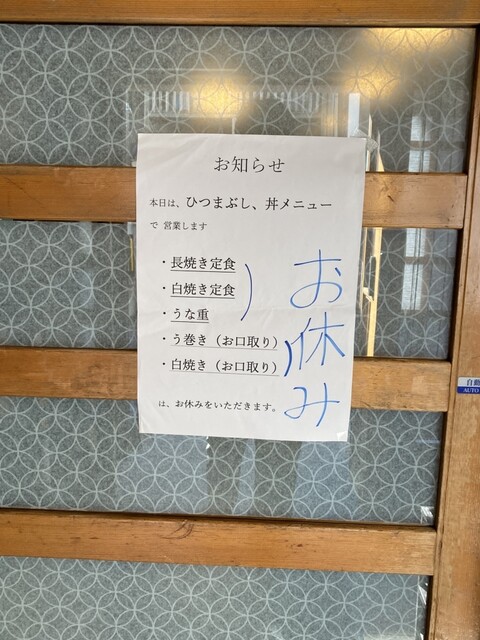 お知らせ
本日は、ひつまぶし、丼メニュー
で 営業します
・長焼き定食
・白焼き定食
・うな重
・う巻き（お口取り）
・白焼き（お口取り）
は、お休みをいただきます。
お休み
自動
AUTO